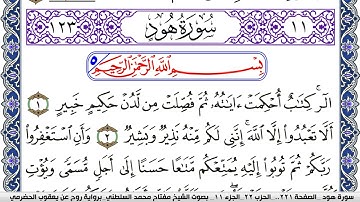 ١١ سُورَةُ هُودٍ ١٢٣
بِسْمِ اللَّهِ الرَّحْمَٰنِ الرَّحِيمِ
الٓر ۚ كِتَٰبٌ أُحْكِمَتْ ءَايَٰتُهُۥ ثُمَّ فُصِّلَتْ مِن لَّدُنْ حَكِيمٍ خَبِيرٍ ١
أَلَّا تَعْبُدُوٓا۟ إِلَّا ٱللَّهَ ۚ إِنَّنِى لَكُم مِّنْهُ نَذِيرٌ وَبَشِيرٌ ٢ وَأَنِ ٱسْتَغْفِرُوا۟
رَبَّكُمْ ثُمَّ تُوبُوٓا۟ إِلَيْهِ يُمَتِّعْكُم مَّتَٰعًا حَسَنًا إِلَىٰٓ أَجَلٍ مُّسَمًّى وَيُؤْتِ
سورة هود - الصفحة ٢٢١.. الحزب ٢٢ - الجزء ١١ - بصوت الشيخ مفتاح محمد السلطني برواية روح عن يعقوب الحضرمي